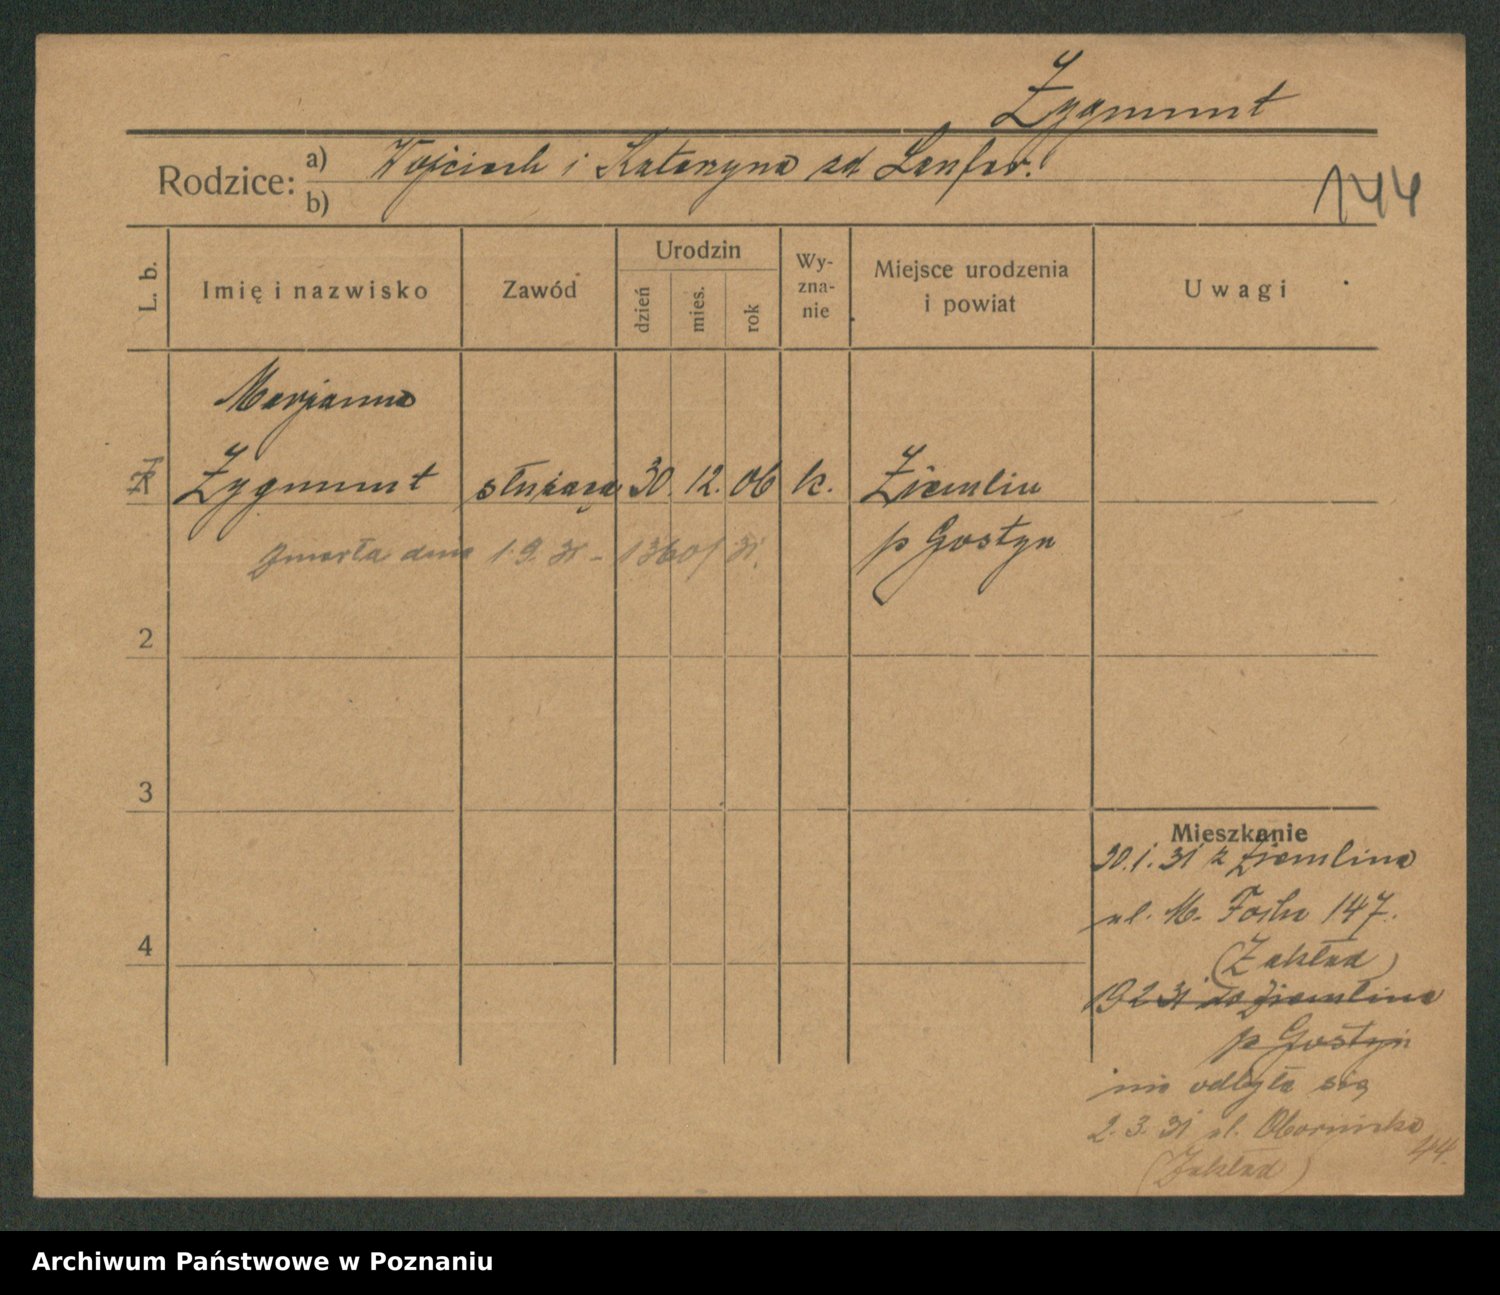 Zygmunt
Rodzice: a) Wojciech i Katarzyna zd
b)
144
L. b.
Imię i nazwisko
Zawód
Urodzin
dzień
mies.
rok
Wy-
zna-
nie
Miejsce urodzenia
i powiat
Uwagi
Marjanna
Zygmunt służąca 30. 12. 06 k. Ziemlin
zmarła dnia 1.9.31 - 1360/31. p Gostyn
2
3
4
Mieszkanie
30.1.31 z Ziemlina
ul. M. Focha 147.
(Zakład)
19 2 31 do Ziemlina
p Gostyń
nie odbyła się
2.3.31 ul. Obornicka
44.
(Zakład)
Archiwum Państwowe w Poznaniu